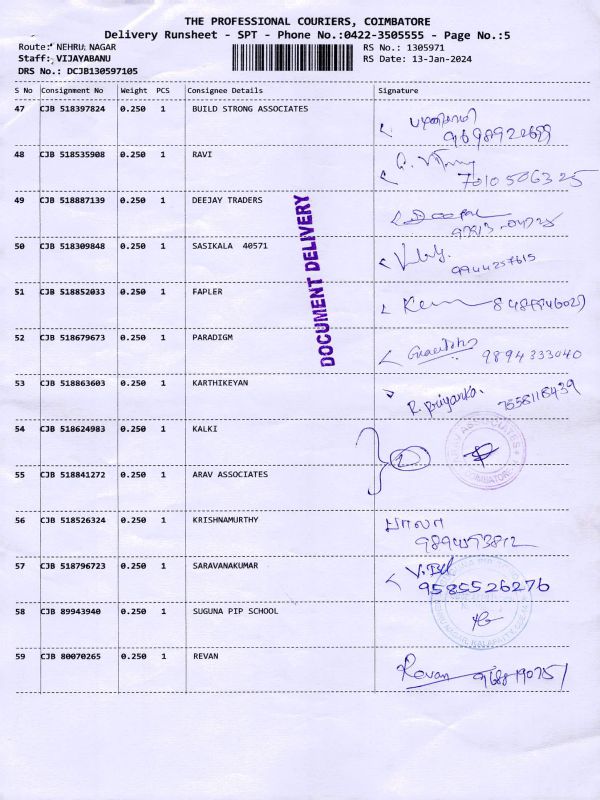 THE PROFESSIONAL COURIERS, COIMBATORE
Delivery Runsheet - SPT - Phone No.:0422-3505555 - Page No.:5
Route: NEHRU NAGAR RS No.: 1305971
Staff: VIJAYABANU RS Date: 13-Jan-2024
DRS No.: DCJB130597105
S No Consignment No Weight PCS Consignee Details Signature
47 CJB 518397824 0.250 1 BUILD STRONG ASSOCIATES
48 CJB 518535908 0.250 1 RAVI
7010506325
49 CJB 518887139 0.250 1 DEEJAY TRADERS
50 CJB 518309848 0.250 1 SASIKALA 40571
9944257615
51 CJB 518852033 0.250 1 FAPLER
52 CJB 518679673 0.250 1 PARADIGM
9894333040
53 CJB 518863603 0.250 1 KARTHIKEYAN
R. Priyanka. 7558118439
54 CJB 518624983 0.250 1 KALKI
55 CJB 518841272 0.250 1 ARAV ASSOCIATES
56 CJB 518526324 0.250 1 KRISHNAMURTHY
மாலா
57 CJB 518796723 0.250 1 SARAVANAKUMAR
9585526276
58 CJB 89943940 0.250 1 SUGUNA PIP SCHOOL
59 CJB 80070265 0.250 1 REVAN
Revan
DOCUMENT DELIVERY